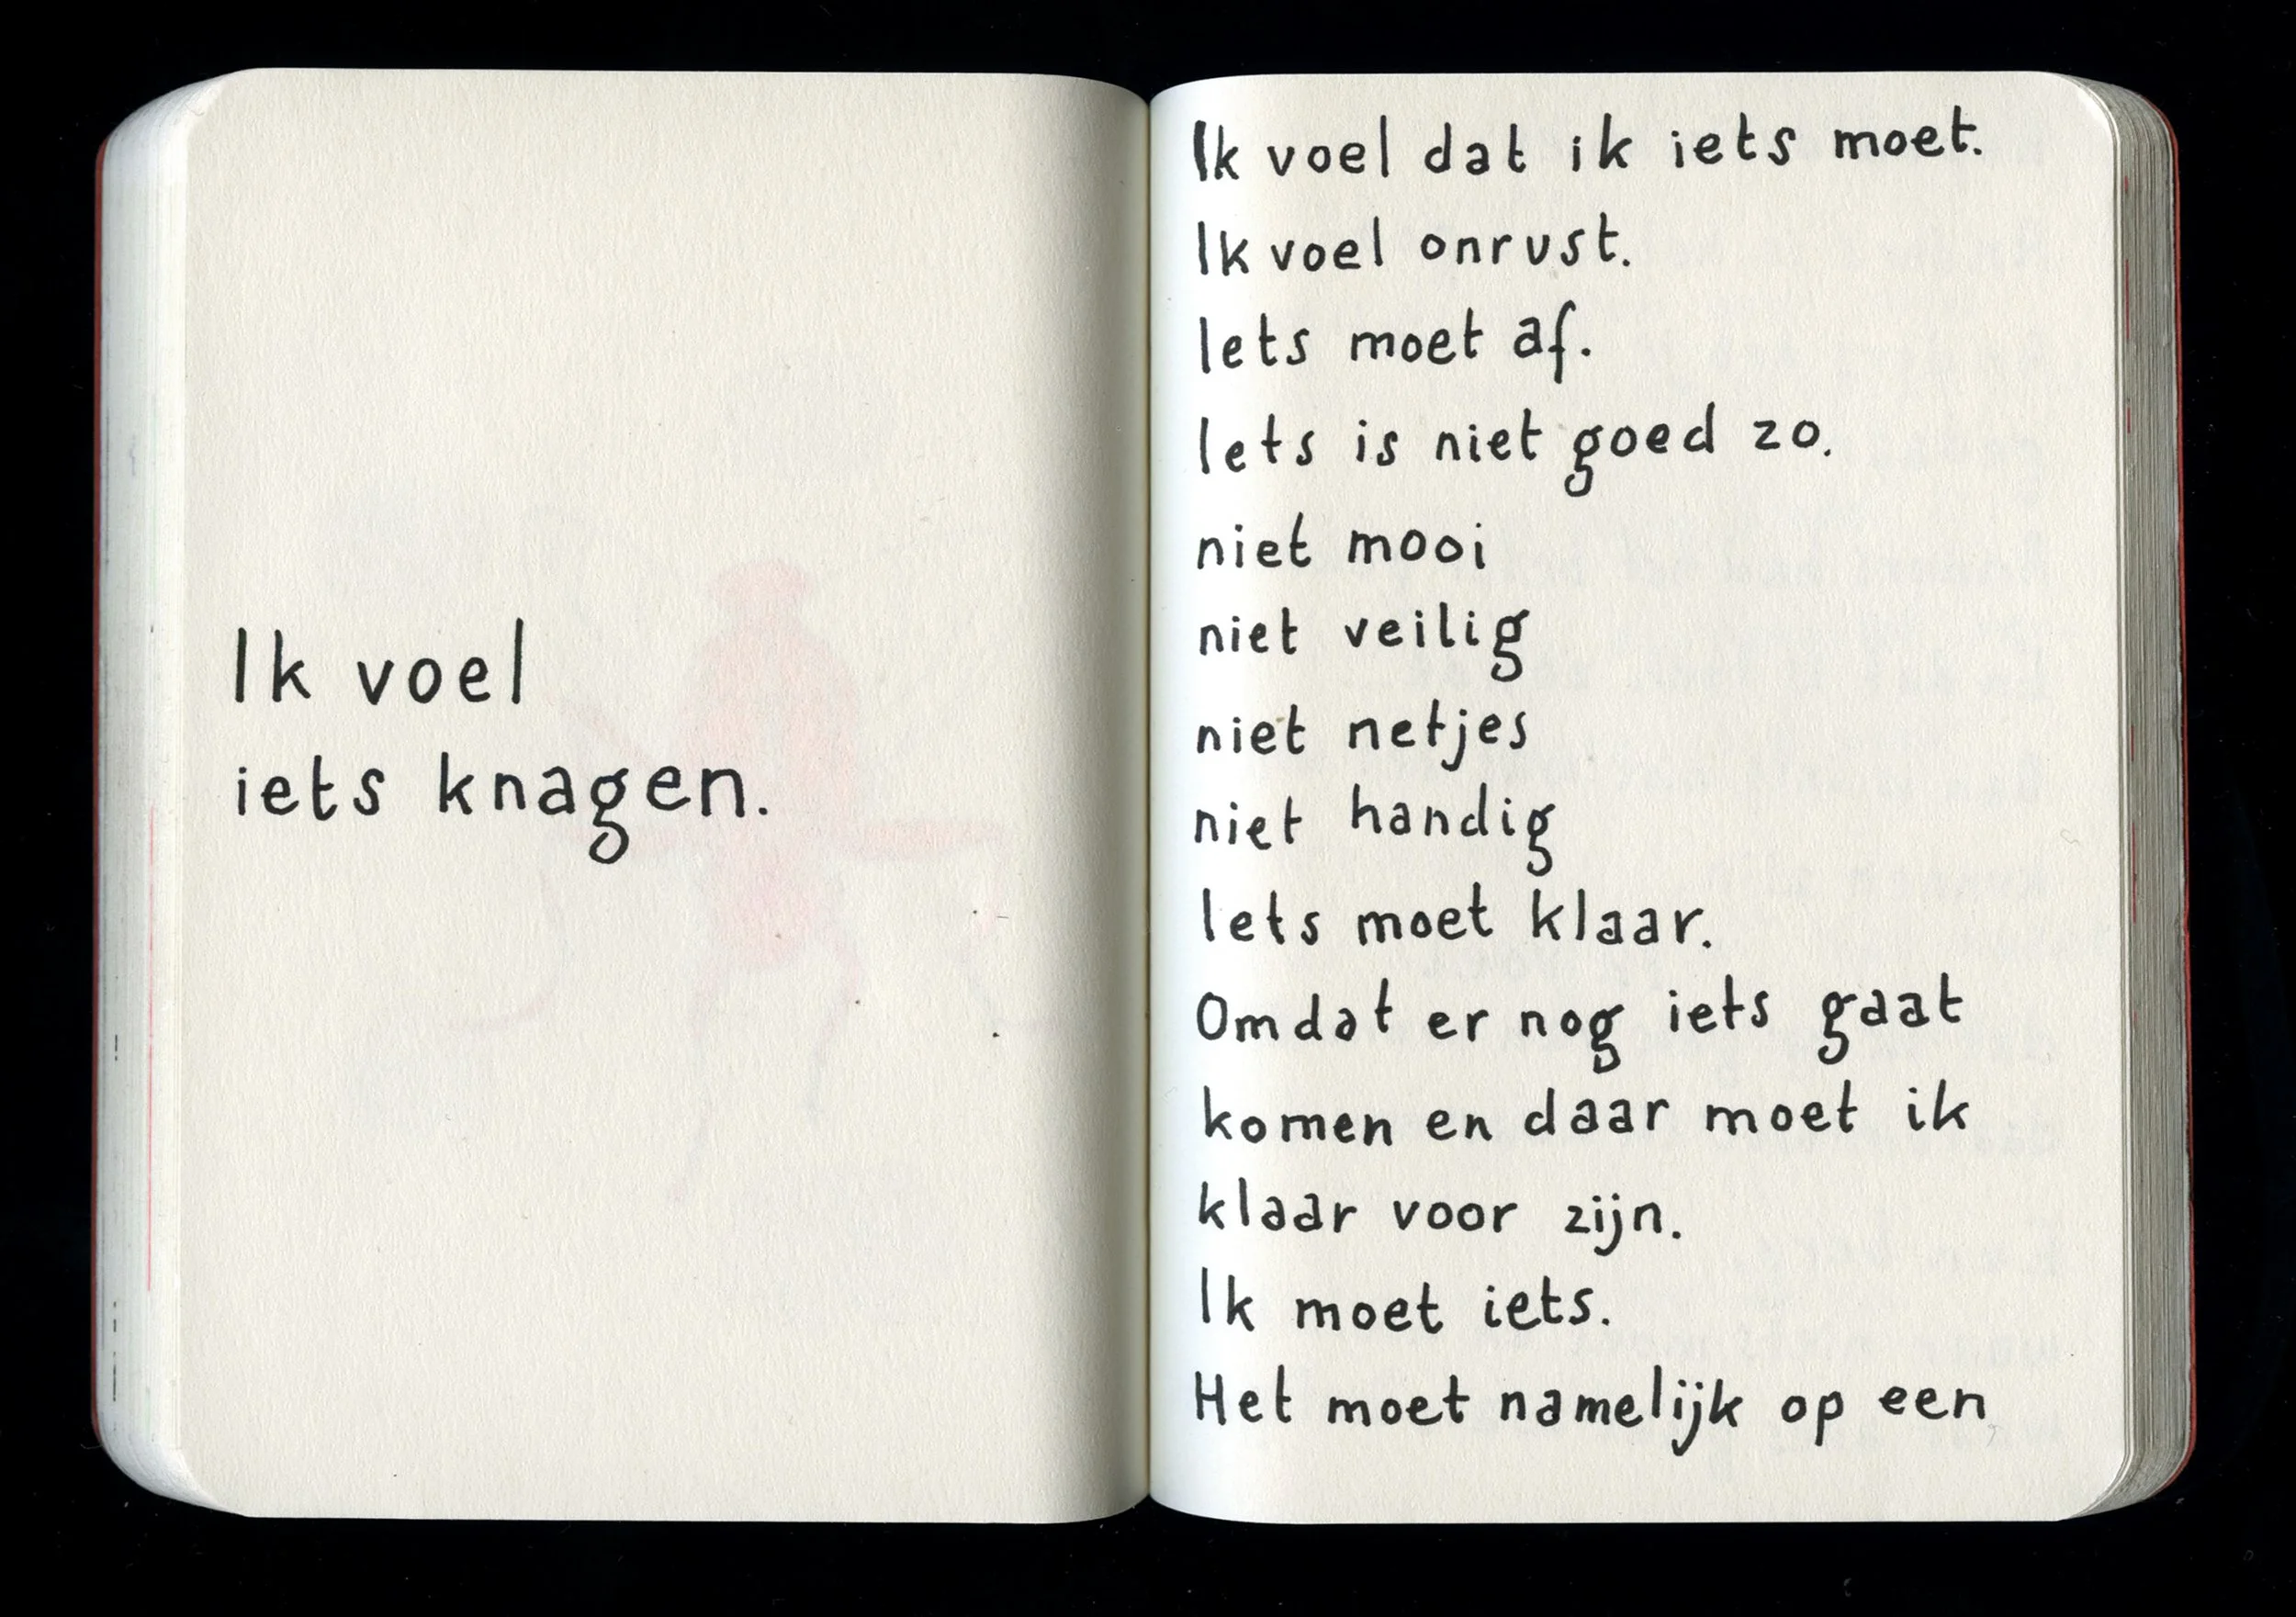 Ik voel
iets knagen.
Ik voel dat ik iets moet.
Ik voel onrust.
Iets moet af.
Iets is niet goed zo.
niet mooi
niet veilig
niet netjes
niet handig
Iets moet klaar.
Omdat er nog iets gaat
komen en daar moet ik
klaar voor zijn.
Ik moet iets.
Het moet namelijk op een